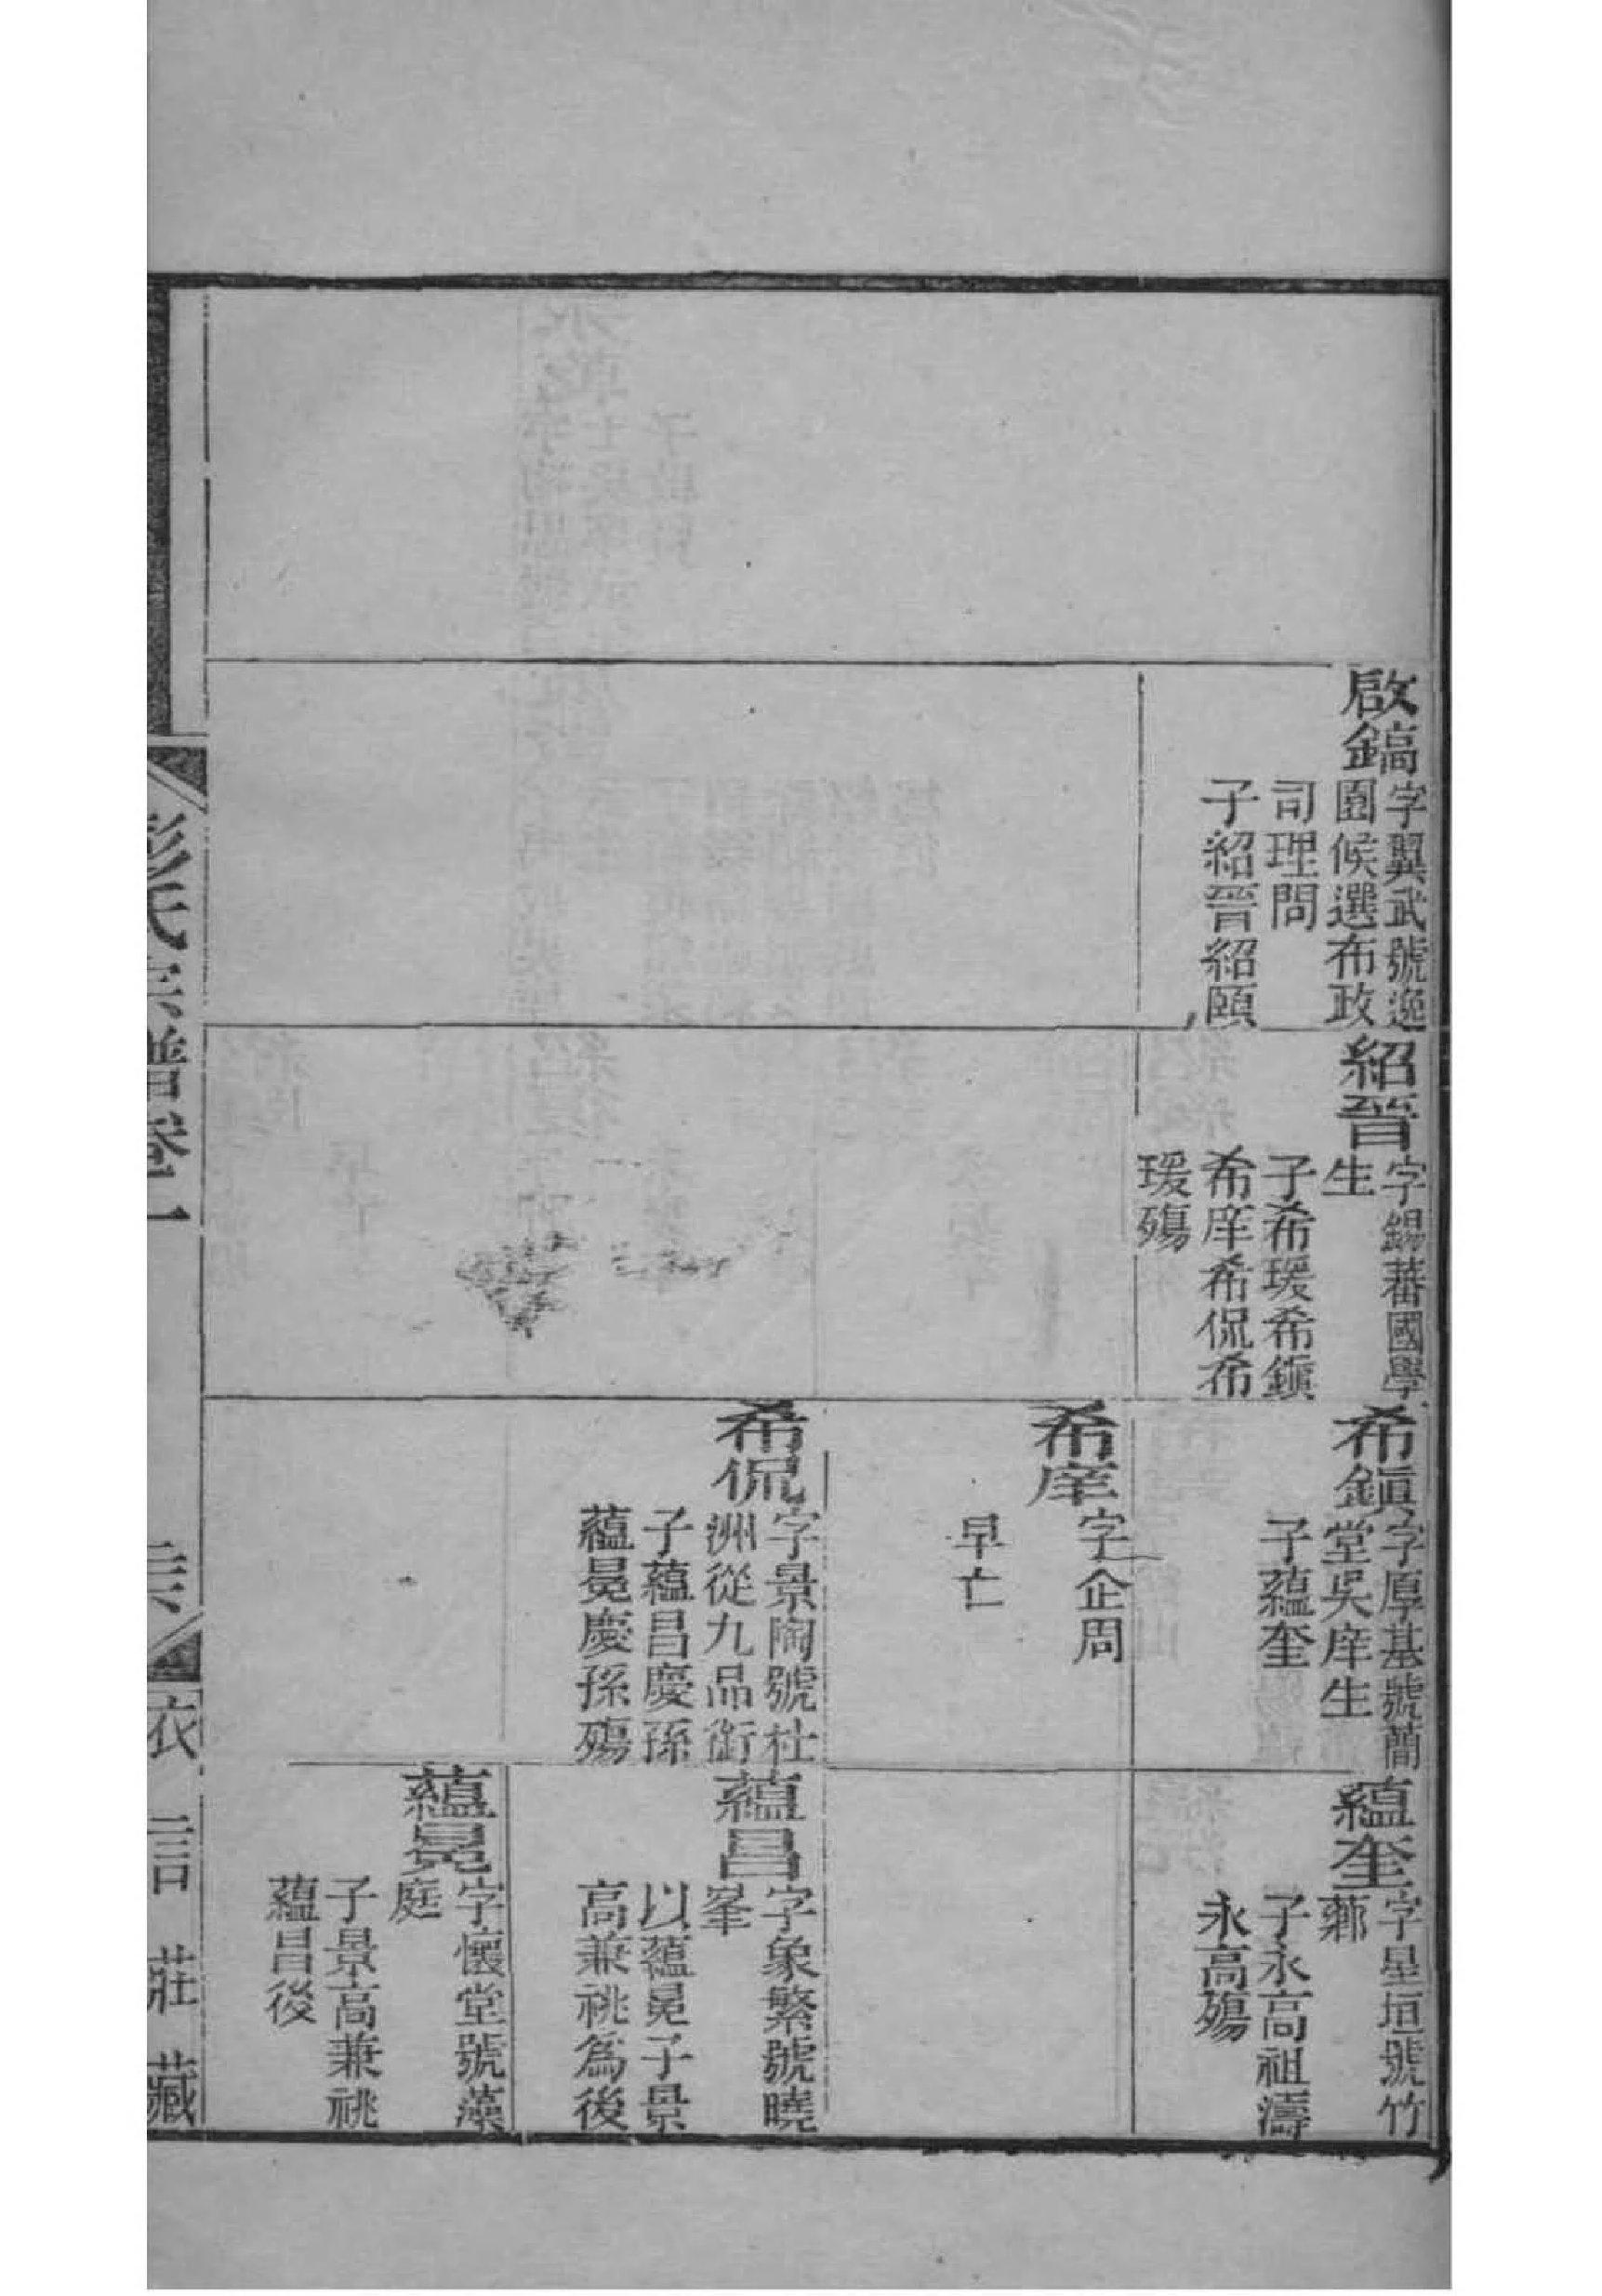 啟鎬
字翼武號逸
園候選布政
司理問
子紹晉紹頤
紹晉
字錫蕃國學
生
子希瑗希鎮
希庠希侃希
瑗殤
希鎮
字厚基號蘭
堂吳庠生
子蘊奎
希庠
字企周
早亡
希侃
字景陶號杜
洲從九品銜
子蘊昌慶孫
蘊晃慶孫殤
蘊奎
字星垣號竹
薌
子永高祖濤
永高殤
蘊昌
字象繁號曉
峯
以蘊晃子景
高兼祧爲後
蘊晃
字懷堂號藻
庭
子景高兼祧
蘊昌後
彭氏宗譜卷一
衣言莊藏